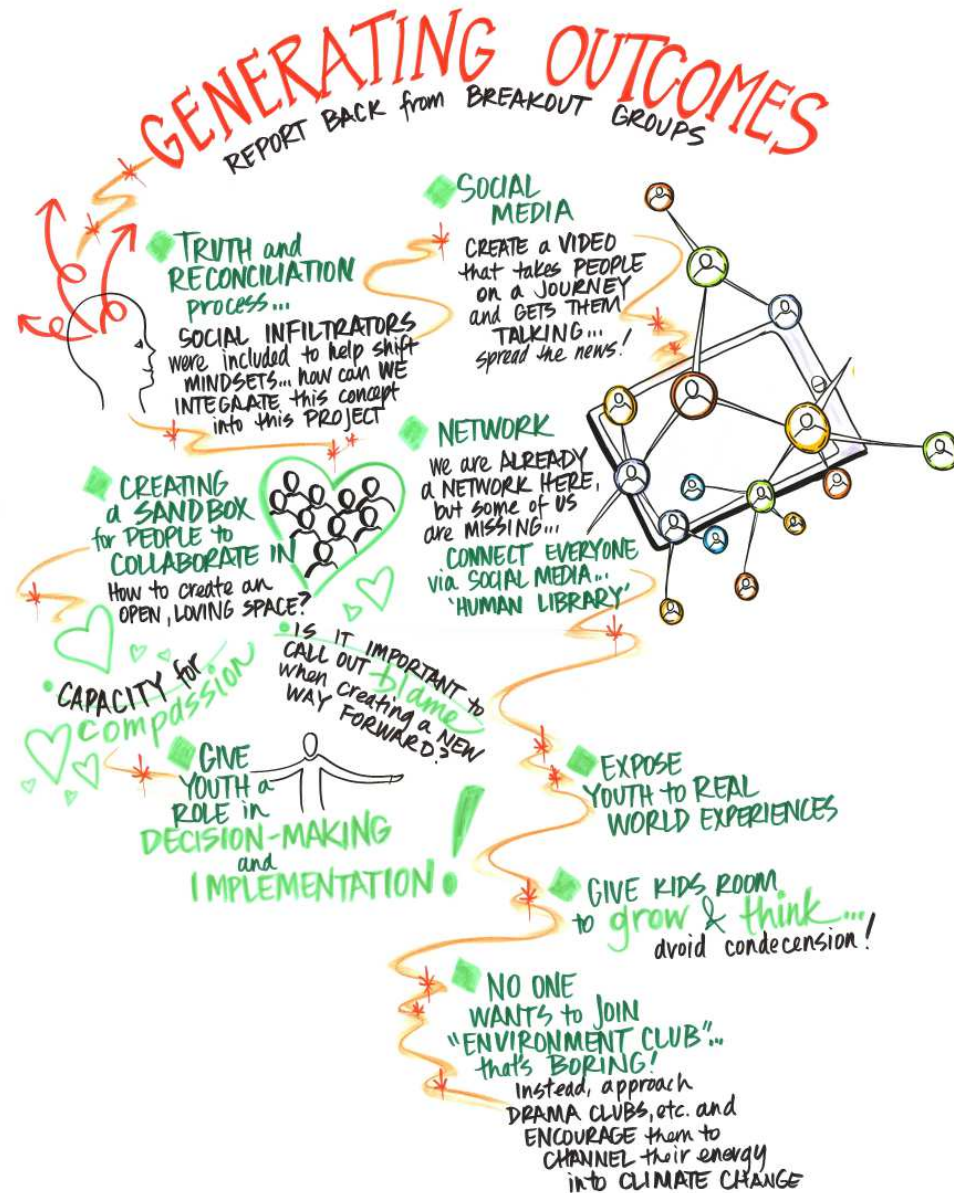 GENERATING OUTCOMES
REPORT BACK from BREAKOUT GROUPS
TRUTH and
RECONCILIATION
process...
SOCIAL INFILTRATORS
were included to help shift
MINDSETS... how can WE
INTEGRATE this concept
into this PROJECT
SOCIAL
MEDIA
CREATE a VIDEO
that takes PEOPLE
on a JOURNEY
and GETS THEM
TALKING...
spread the news!
CREATING
a SANDBOX
for PEOPLE to
COLLABORATE IN
How to create an
OPEN, LOVING SPACE?
NETWORK
we are ALREADY
a NETWORK HERE,
but some of US
are MISSING...
CONNECT EVERYONE
via SOCIAL MEDIA...
'HUMAN LIBRARY'
CAPACITY for
compassion
IS IT IMPORTANT to
CALL OUT blame
when creating a NEW
WAY FORWARD?
GIVE
YOUTH a
ROLE in
DECISION-MAKING
and
IMPLEMENTATION!
EXPOSE
YOUTH to REAL
WORLD EXPERIENCES
GIVE KIDS ROOM
to grow & think...
avoid condecension!
NO ONE
WANTS to JOIN
"ENVIRONMENT CLUB"...
that's BORING!
Instead, approach
DRAMA CLUBS, etc. and
ENCOURAGE them to
CHANNEL their energy
into CLIMATE CHANGE